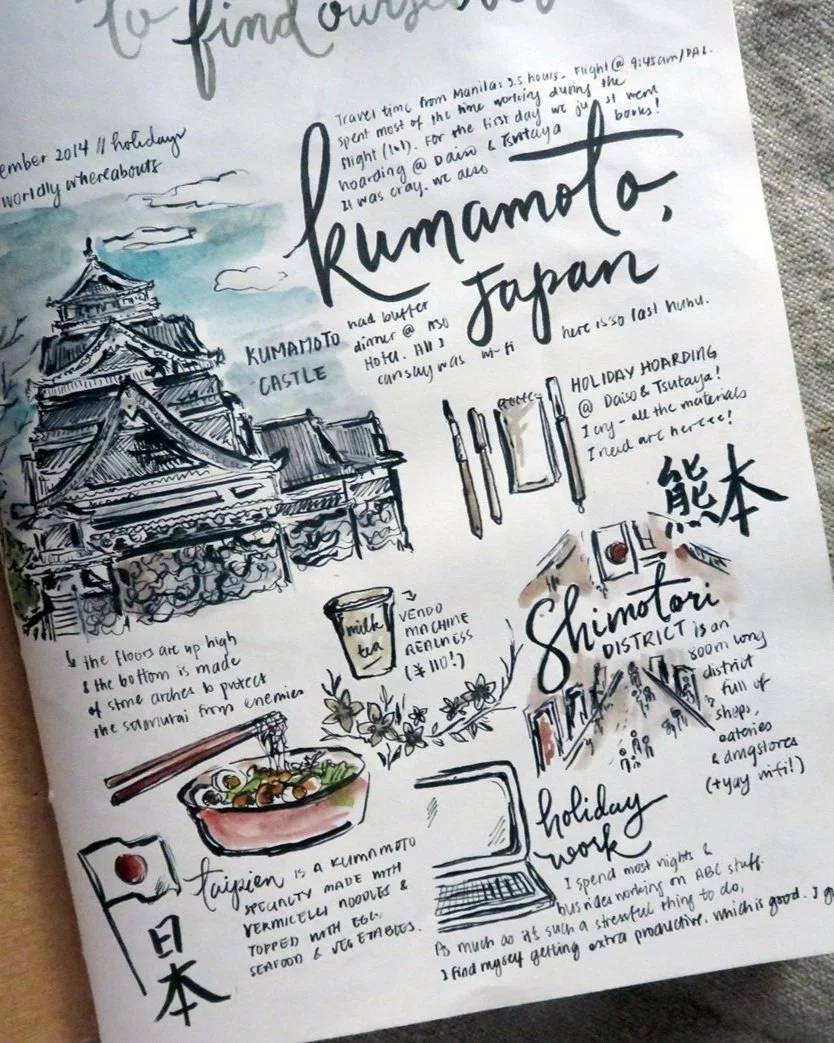 to find ourselves
ember 2014 // holidays
worldly whereabouts
Travel time from Manila: 3.5 hours. Flight @ 9:45am/PAL.
spent most of the time working during the
flight (lol). For the first day we just went
hoarding @ Daiso & Tsutaya books!
It was cray. We also
kumamoto,
Japan
had buffet
dinner @ KSO
Hotel. All I
can say was wi-fi here is so last huhu.
KUMAMOTO
CASTLE
HOLIDAY HOARDING
@ Daiso & Tsutaya!
I cry - all the materials
I need are hereee!
熊本
milk
tea
VENDO
MACHINE
REALNESS
(¥110!)
Shimotori
DISTRICT is an
800m long
district
full of
shops,
eateries
& drugstores
(+yay wifi!)
the floors are up high
& the bottom is made
of stone arches to protect
the samurai from enemies
taipien IS A KUMAMOTO
SPECIALTY MADE WITH
VERMICELLI NOODLES &
TOPPED WITH EGG,
SEAFOOD & VEGETABLES.
日本
holiday
work
I spend most nights &
bus rides working on ABC stuff.
As much as it's such a stressful thing to do,
I find myself getting extra productive, which is good. I gu